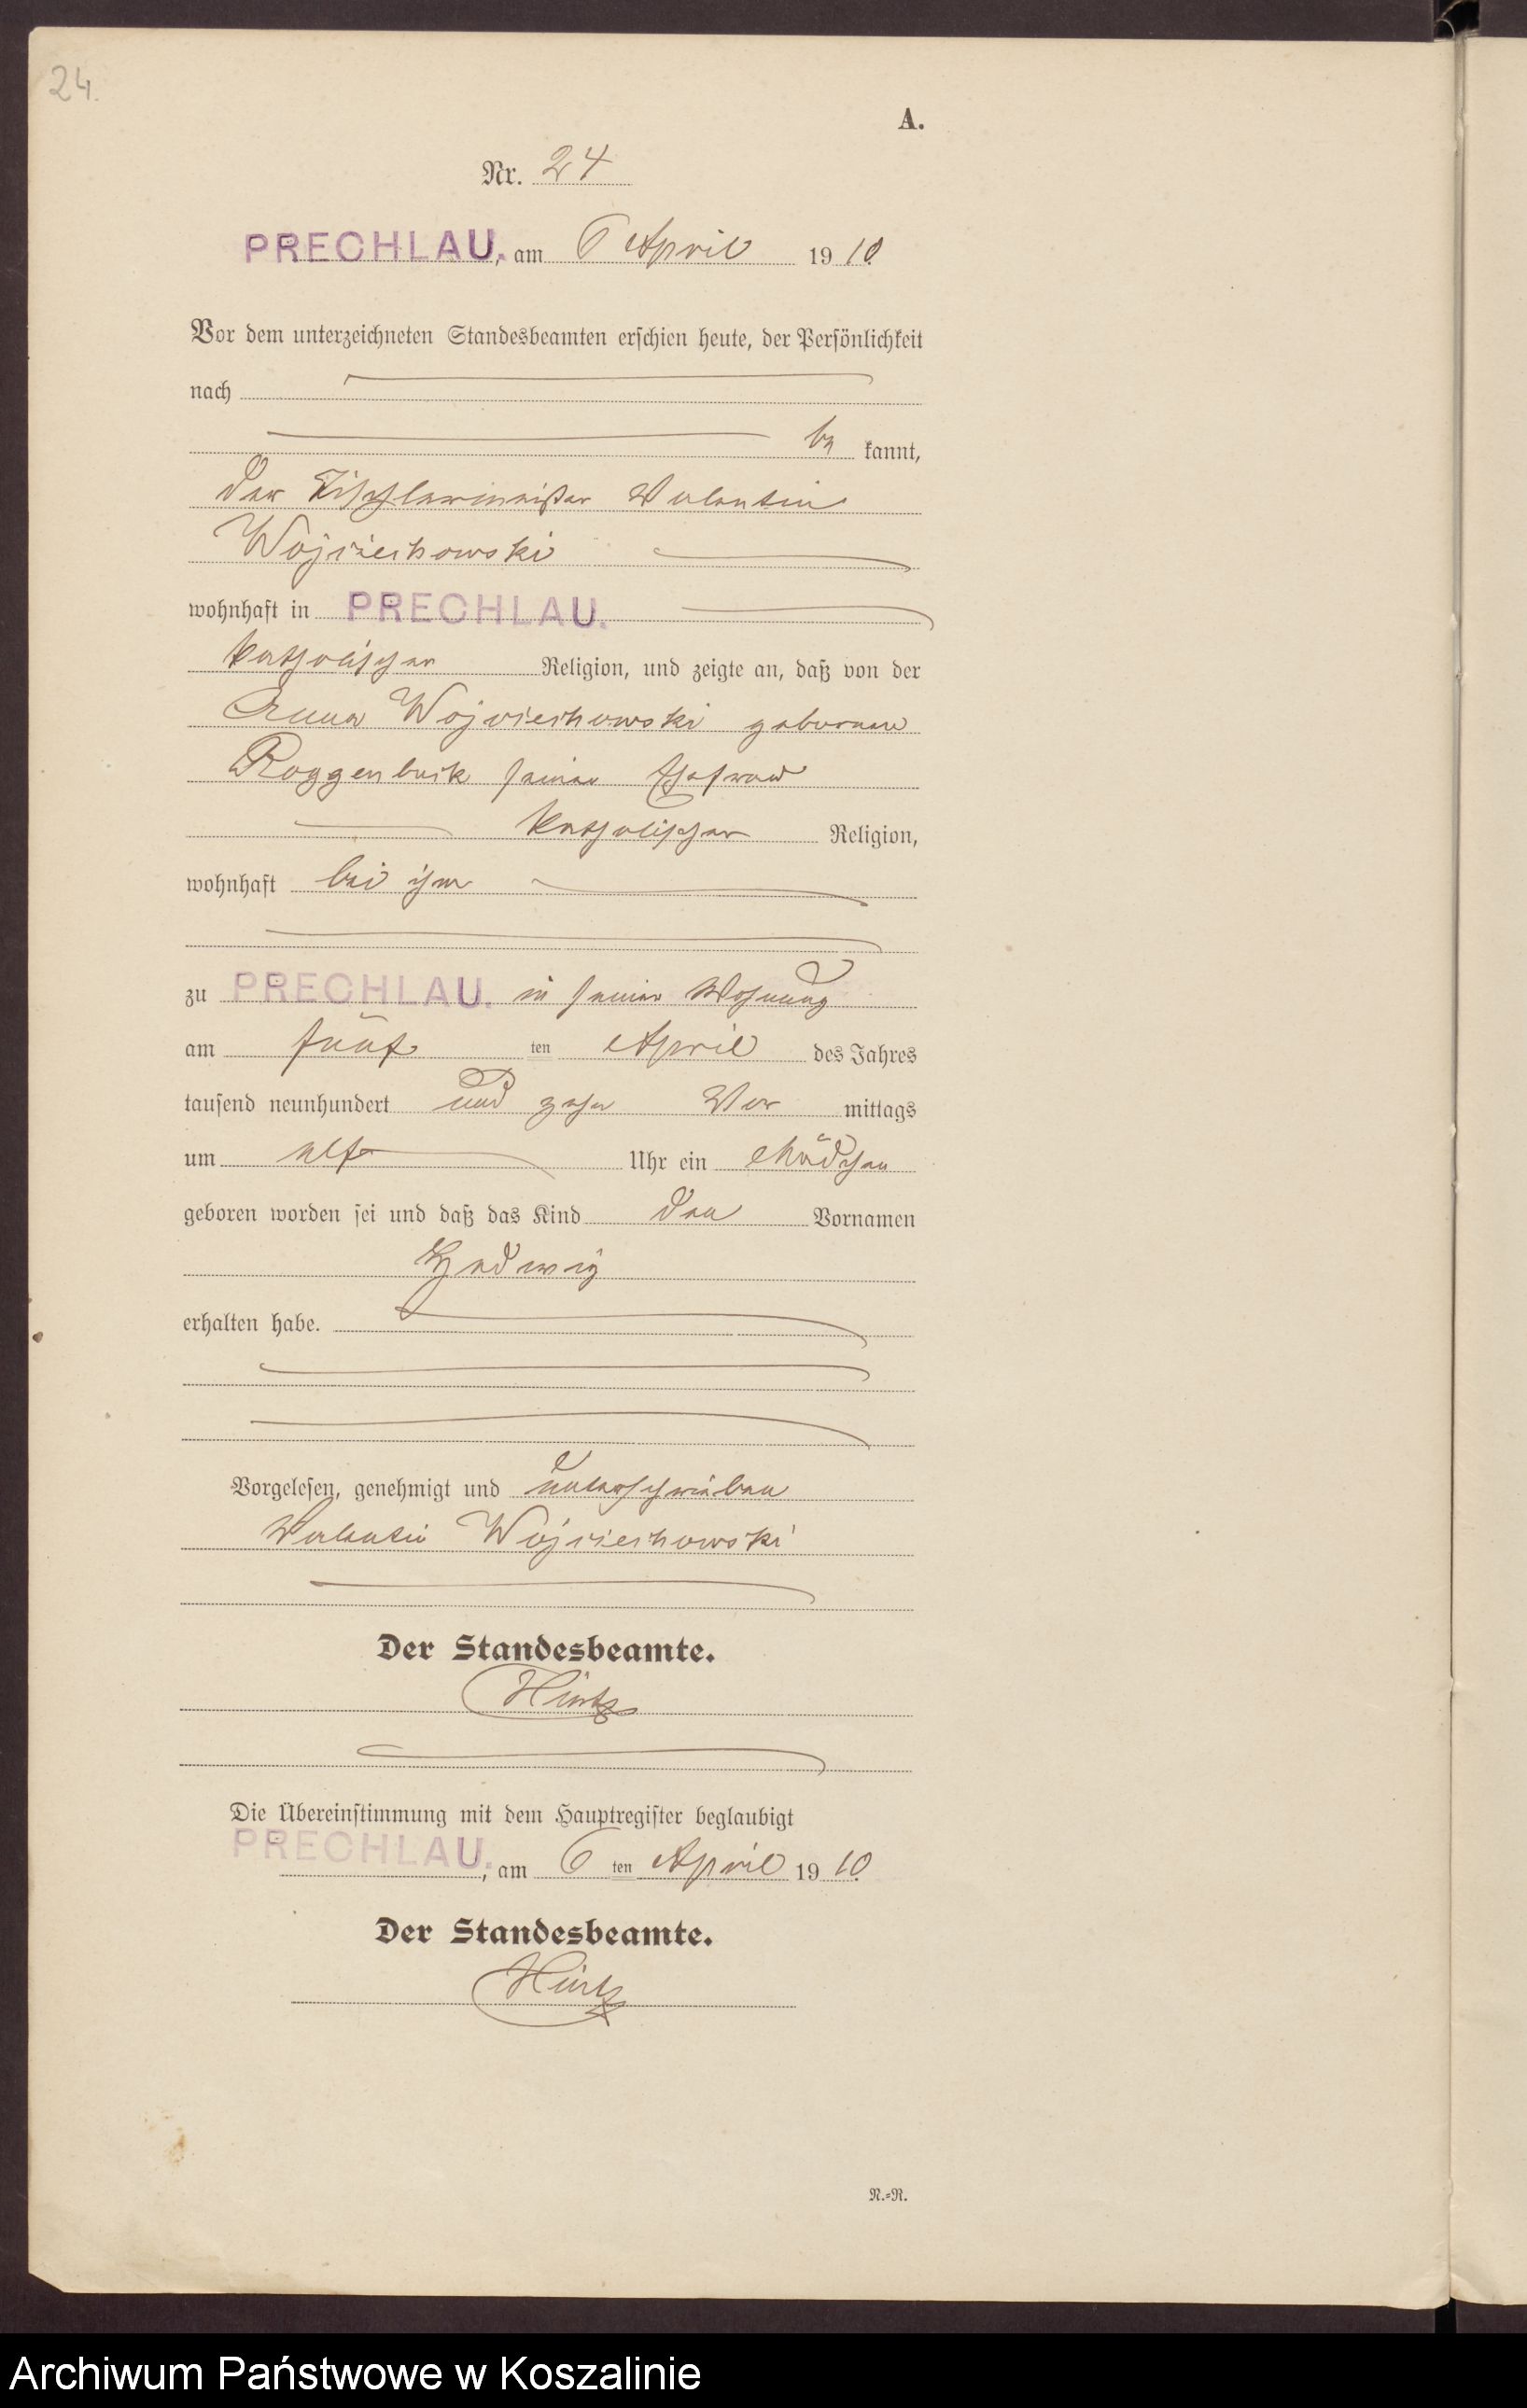 24.
A.
Nr. 24
PRECHLAU, am 6 April 1910.
Vor dem unterzeichneten Standesbeamten erschien heute, der Persönlichkeit
nach
be kannt,
der Tischlermeister Valentin
Wojciechowski
wohnhaft in PRECHLAU.
katholischer Religion, und zeigte an, daß von der
Anna Wojciechowski geborene
Roggenbuck seiner Ehefrau
katholischer Religion,
wohnhaft bei ihm
zu PRECHLAU. in seiner Wohnung
am fünf ten April des Jahres
tausend neunhundert und zehn Vor mittags
um elf Uhr ein Mädchen
geboren worden sei und daß das Kind den Vornamen
Hedwig
erhalten habe.
Vorgelesen, genehmigt und unterschrieben
Valentin Wojciechowski
Der Standesbeamte.
Die Übereinstimmung mit dem Hauptregister beglaubigt
PRECHLAU, am 6 ten April 1910.
Der Standesbeamte.
N.=R.
Archiwum Państwowe w Koszalinie